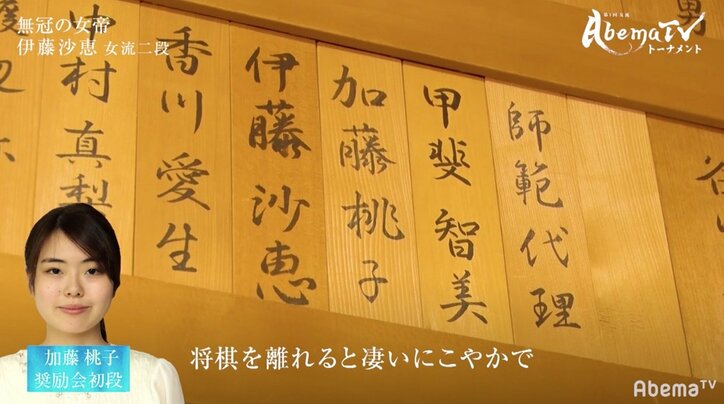 無冠の女帝
伊藤沙恵 女流二段
第1回 女流
AbemaTV
トーナメント
師範代理
甲斐智美
加藤桃子
伊藤沙恵
香川愛生
中村真梨
加藤 桃子
奨励会初段
将棋を離れると凄いにこやかで
AbemaTV